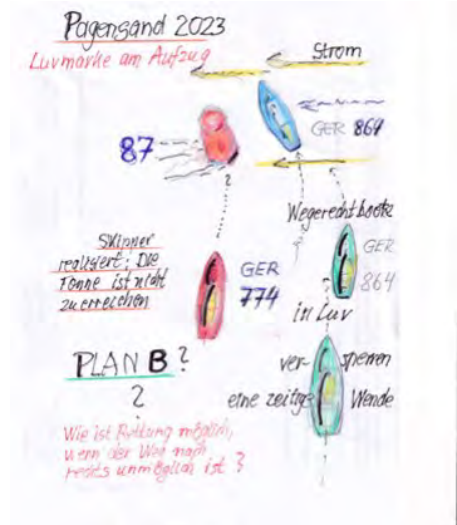 Pagensand 2023
Luvmarke am Aufzug
Strom
GER 864
87
Wegerechtboote
GER
864
Skipper
realisiert: Die
Tonne ist nicht
zu erreichen
GER
774
in Luv
PLAN B?
ver- sperren
eine zeitige Wende
?
Wie ist Rettung möglich,
wenn der Weg nach
rechts unmöglich ist?